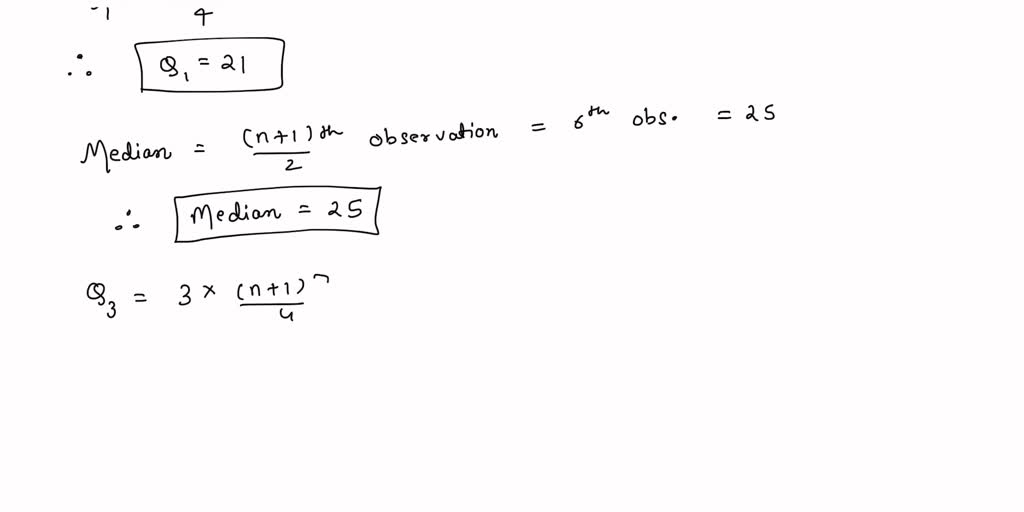 -1 4
∴ Q₁ = 21
Median = (n+1)th/2 observation = 6th obs. = 25
∴ Median = 25
Q₃ = 3 × (n+1)/4